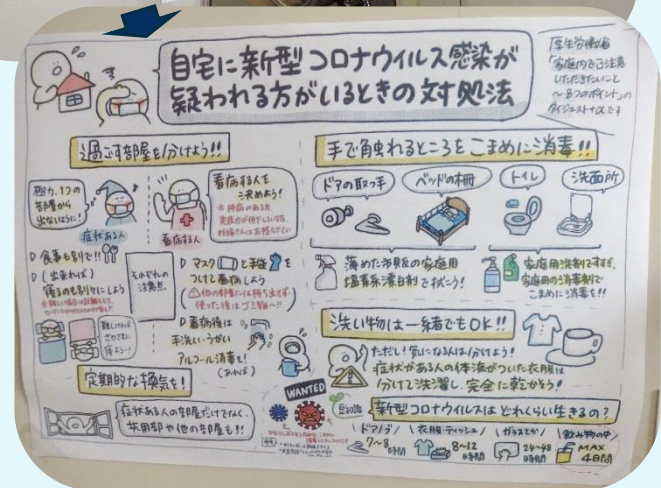 自宅に新型コロナウイルス感染が
疑われる方がいるときの対処法
厚生労働省
「家庭内でご注意
いただきたいこと
～8つのポイント」の
過ごす部屋を分けよう!!
極力、1つの
部屋から
出ないように!
症状ある人
看病する人
看病する人を
決めよう!
食事も別で!!
(出来れば)
寝るのも別々にしよう
それぞれの
注意点
マスクと手袋を
つけて看病しよう
他の部屋には持ち出さず、
使った後はゴミ箱へ!!
看病後は
手洗い・うがい
アルコール消毒も!
(あれば)
定期的な換気を!
症状ある人の部屋だけでなく、
共用部や他の部屋も!!
手で触れるところをこまめに消毒!!
ドアの取っ手
ベッドの柵
トイレ
洗面所
薄めた市販の家庭用
塩素系漂白剤で拭こう!
家庭用洗剤ですすぎ、
家庭用の消毒剤で
こまめに消毒を!!
洗い物は一緒でもOK!!
ただし!気になる人は分けよう!
症状がある人の体液がついた衣服は
分けて洗濯し、完全に乾かそう!
WANTED
豆知識
新型コロナウイルスはどれくらい生きるの?
ドアノブ
7～8
時間
衣服・ティッシュ
8～12
時間
ガラスとか
24～48
時間
飲み物の中
MAX
4日間